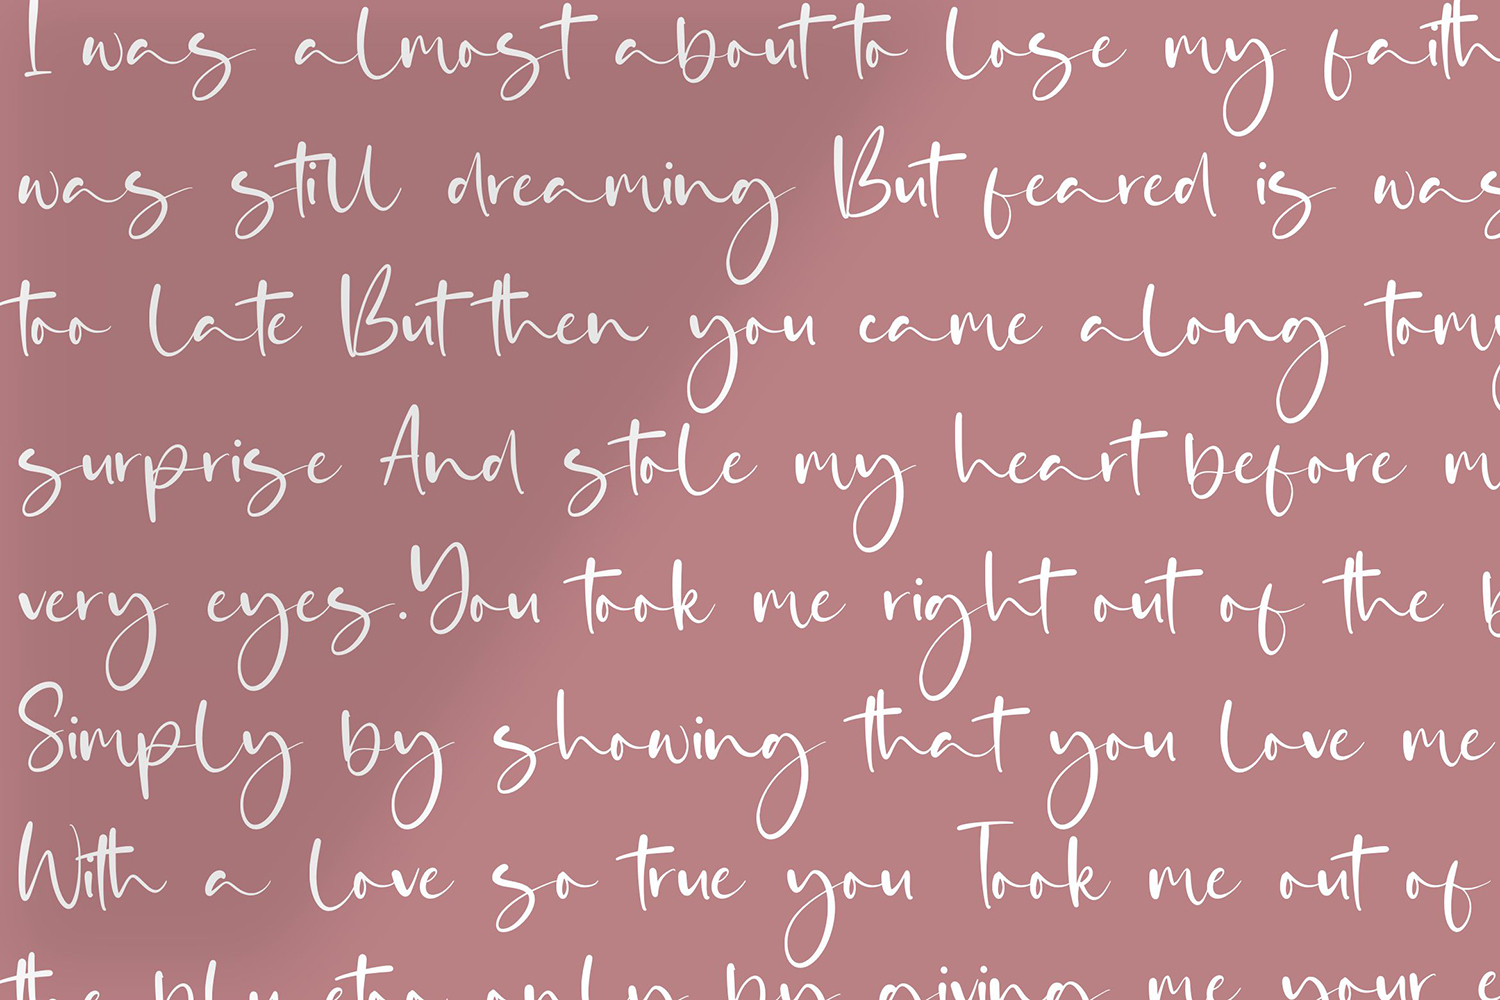 I was almost about to lose my faith
was still dreaming But feared is was
too late But then you came along to my
surprise And stole my heart before
very eyes.You took me right out of the
Simply by showing that you love me
With a love so true you Took me out of
the only by giving me your